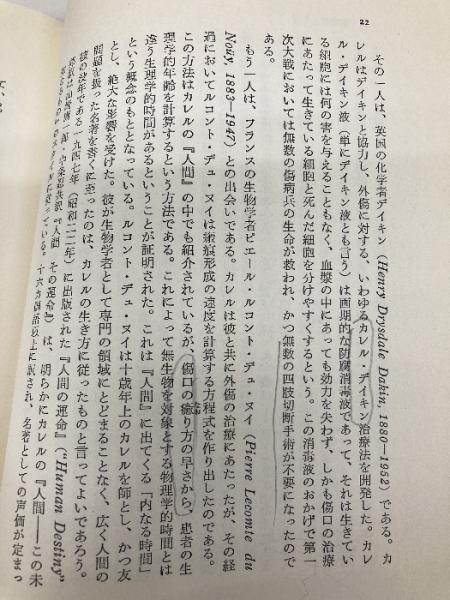 22
その一人は、英国の化学者デイキン（Henry Drysdale Dakin, 1880―1952）である。カ
レルはデイキンと協力し、外傷に対する、いわゆるカレル・デイキン治療法を開発した。カレ
ル・デイキン液（単にデイキン液とも言う）は画期的な防腐消毒液であって、それは生きてい
る細胞には何の害を与えることもなく、血漿の中にあっても効力を失わず、しかも傷口の治療
にあたって生きている細胞と死んだ細胞を分けやすくするという。この消毒液のおかげで第一
次大戦においては無数の傷病兵の生命が救われ、かつ無数の四肢切断手術が不要になったので
ある。
もう一人は、フランスの生物学者ピエール・ルコント・デュ・ヌイ（Pierre Lecomte du
Noüy, 1883―1947）との出会いである。カレルは彼と共に外傷の治療にあたったが、その経
過においてルコント・デュ・ヌイは瘢痕形成の速度を計算する方程式を作り出したのである。
この方法はカレルの『人間』の中でも紹介されているが、傷口の癒り方の早さから、患者の生
理学的年齢を計算するという方法である。これによって無生物を対象とする物理学的時間とは
違う生理学的時間があるということが証明された。これは『人間』に出てくる「内なる時間」
という概念のもととなっている。ルコント・デュ・ヌイは十歳年上のカレルを師とし、かつ友
とし、絶大な影響を受けた。彼が生物学者として専門の領域にとどまることなく、広く人間の
問題を扱った名著を書くに至ったのは、カレルの生き方に従ったものと言ってよいであろう。
彼の歿年である一九四七年（昭和二二年）に出版された『人間の運命』（"Human Destiny"
『人間 その運命』）は、明らかにカレルの『人間――この未
名著としての声価が定まっ